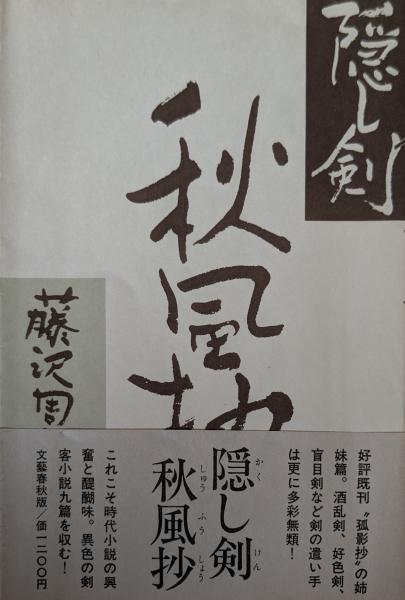 隠し剣
秋風抄
藤沢周
好評既刊〝孤影抄〟の姉
妹篇。酒乱剣、好色剣、
盲目剣など剣の遣い手
は更に多彩無類！
隠し剣
かく
けん
秋風抄
しゅう
ふう
しょう
これこそ時代小説の興
奮と醍醐味。異色の剣
客小説九篇を収む！
文藝春秋版／価一二〇〇円